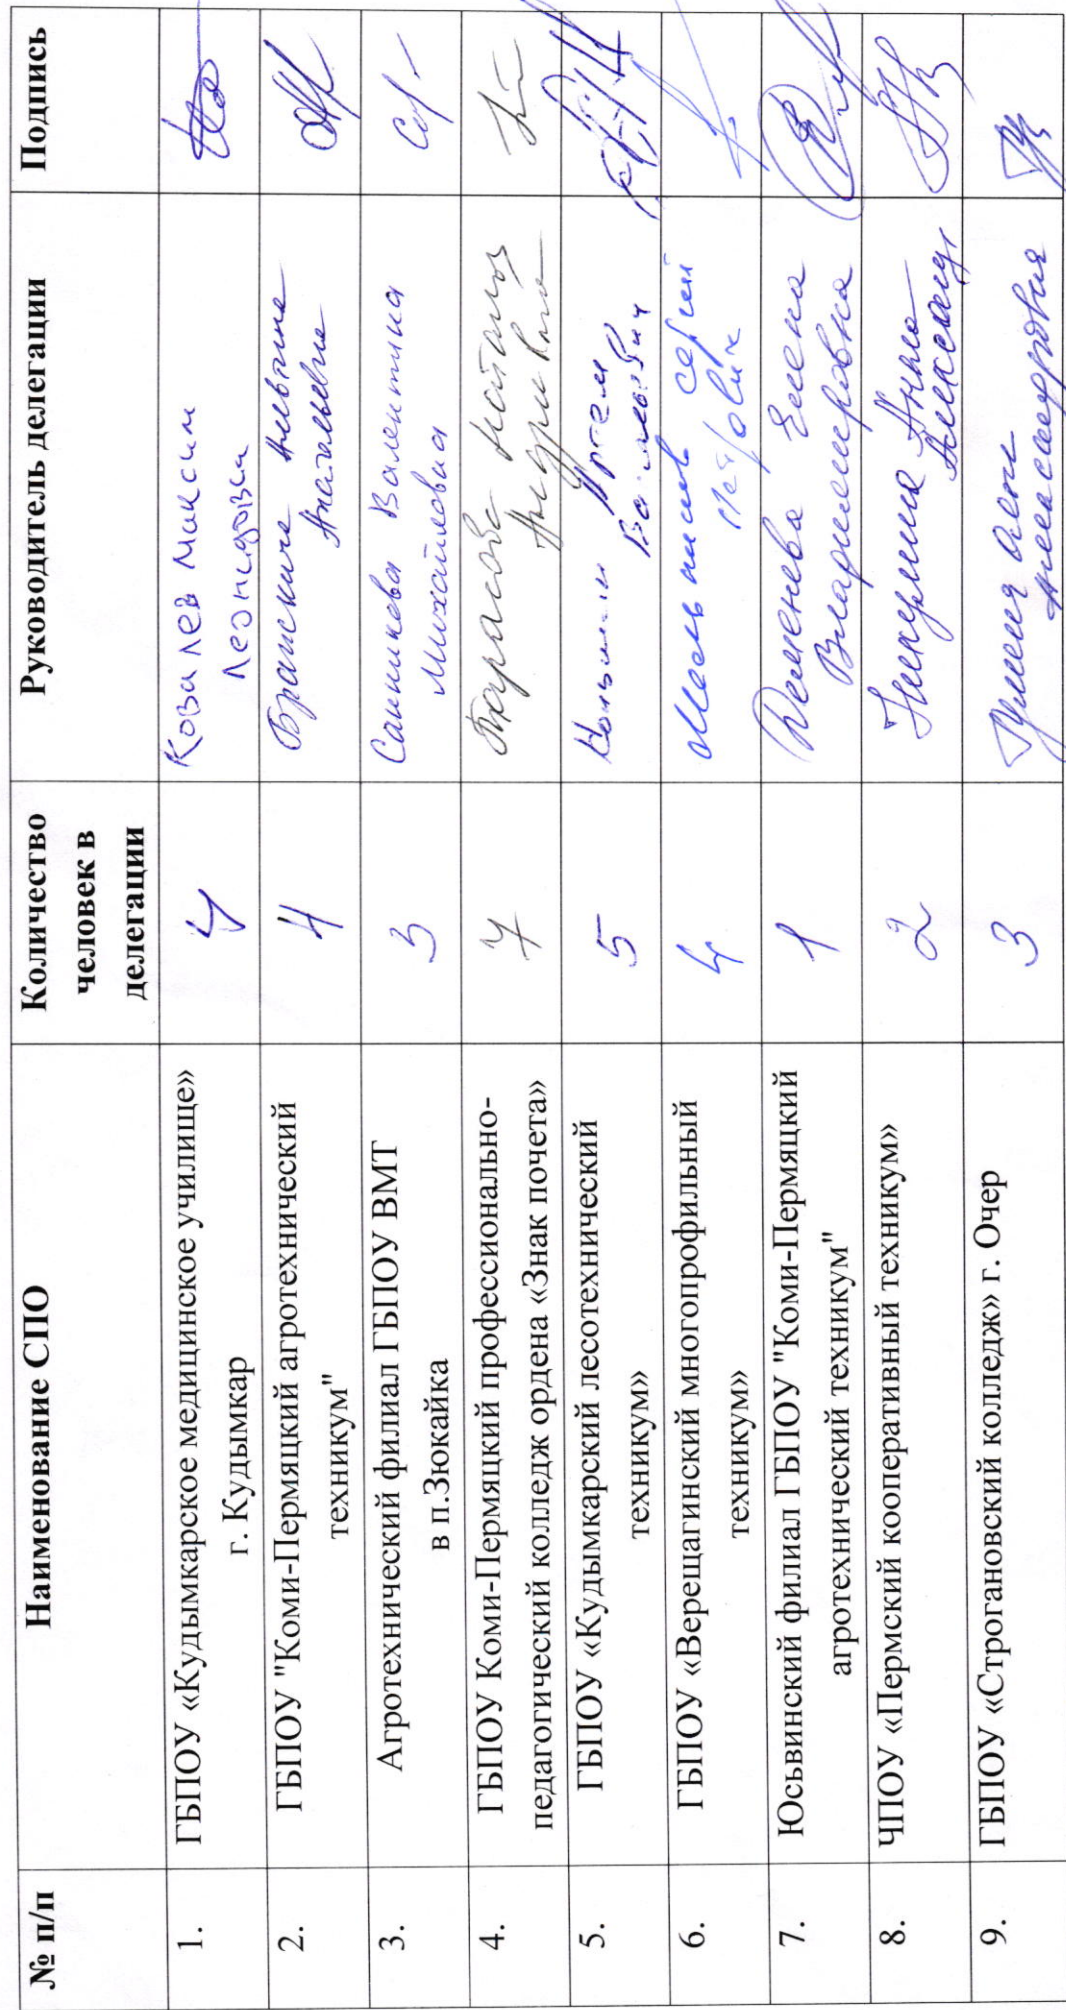 № п/п
Наименование СПО
Количество
человек в
делегации
Руководитель делегации
Подпись
1.
ГБПОУ «Кудымкарское медицинское училище»
г. Кудымкар
4
Ковалев Максим
Леонидович
2.
ГБПОУ "Коми-Пермяцкий агротехнический
техникум"
4
3.
Агротехнический филиал ГБПОУ ВМТ
в п.Зюкайка
3
Санникова Валентина
Михайловна
4.
ГБПОУ Коми-Пермяцкий профессионально-
педагогический колледж ордена «Знак почета»
Тарасова Наталья
5.
ГБПОУ «Кудымкарский лесотехнический
техникум»
5
Артем
6.
ГБПОУ «Верещагинский многопрофильный
техникум»
4
Сергей
Петрович
7.
Юсьвинский филиал ГБПОУ "Коми-Пермяцкий
агротехнический техникум"
1
Елена
Владимировна
8.
ЧПОУ «Пермский кооперативный техникум»
2
Анна
9.
ГБПОУ «Строгановский колледж» г. Очер
3
Александровна